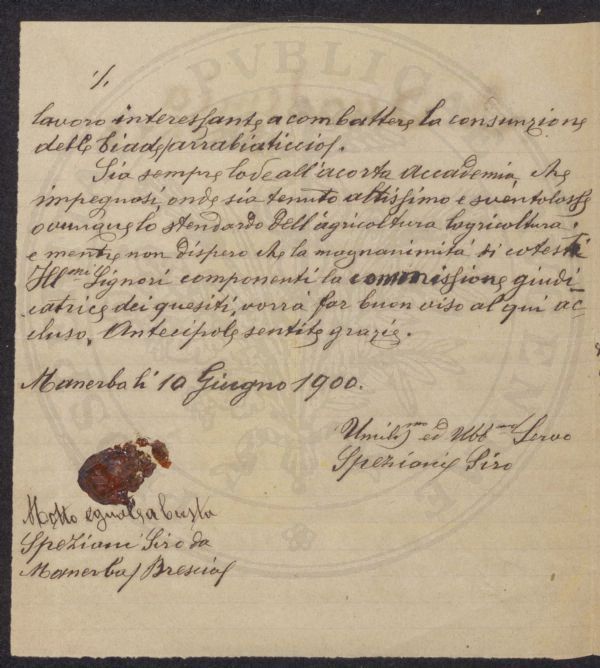 ./.
lavoro interessante a combattere la consunzione
delle biade (arrabiaticcio).
Sia sempre lode all'acorta Accademia, che
impegnasi, onde sia tenuto altissimo e sventolosse
ovunque lo stendardo dell'agricoltura lagricoltura;
e mentre non dispero che la magnanimità di cotesti
Ill.mi Signori componenti la commissione giudi-
catrice dei quesiti, vorrà far buon viso al qui ac-
cluso. Antecipole sentite grazie.
Manerba li 10 Giugno 1900.
Umilis.mo ed Ubb.mo Servo
Speziani Siro
Motto eguale a busta
Speziani Siro da
Manerba (Brescia)
PVBLICAE